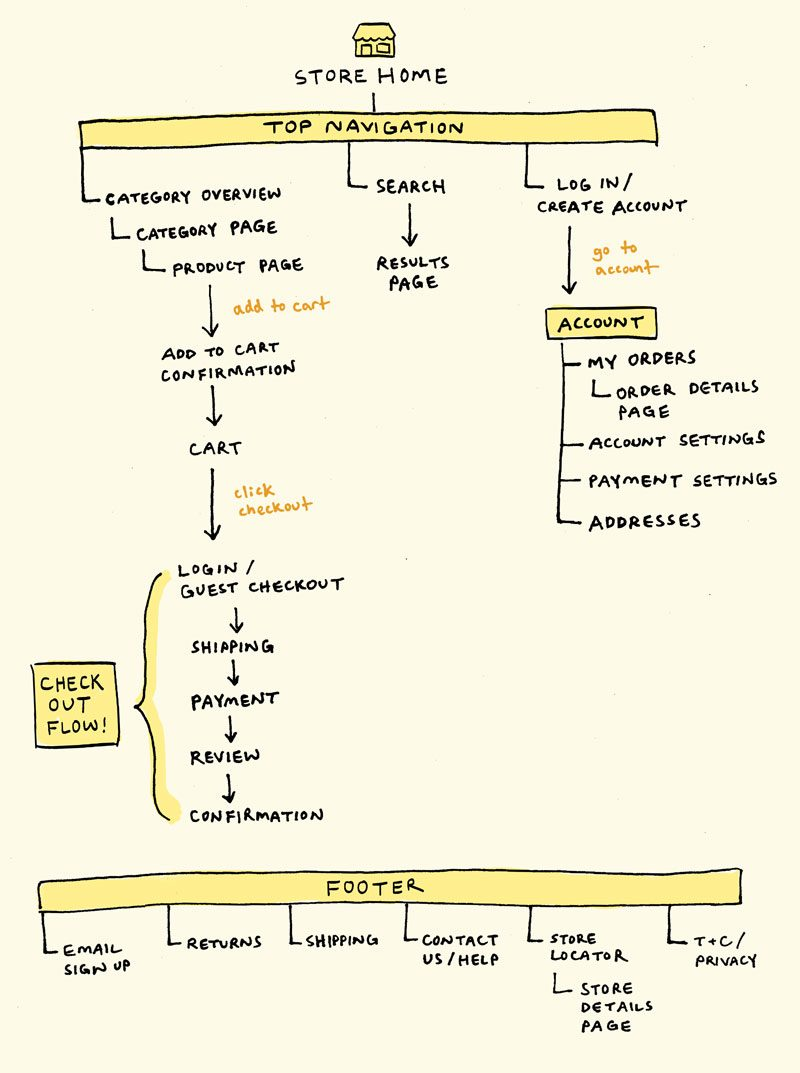 STORE HOME
TOP NAVIGATION
CATEGORY OVERVIEW
CATEGORY PAGE
PRODUCT PAGE
add to cart
ADD TO CART
CONFIRMATION
CART
click
checkout
LOGIN /
GUEST CHECKOUT
SHIPPING
PAYMENT
REVIEW
CONFIRMATION
CHECK
OUT
FLOW!
SEARCH
RESULTS
PAGE
LOG IN /
CREATE ACCOUNT
go to
account
ACCOUNT
MY ORDERS
ORDER DETAILS
PAGE
ACCOUNT SETTINGS
PAYMENT SETTINGS
ADDRESSES
FOOTER
EMAIL
SIGN UP
RETURNS
SHIPPING
CONTACT
US / HELP
STORE
LOCATOR
STORE
DETAILS
PAGE
T+C /
PRIVACY